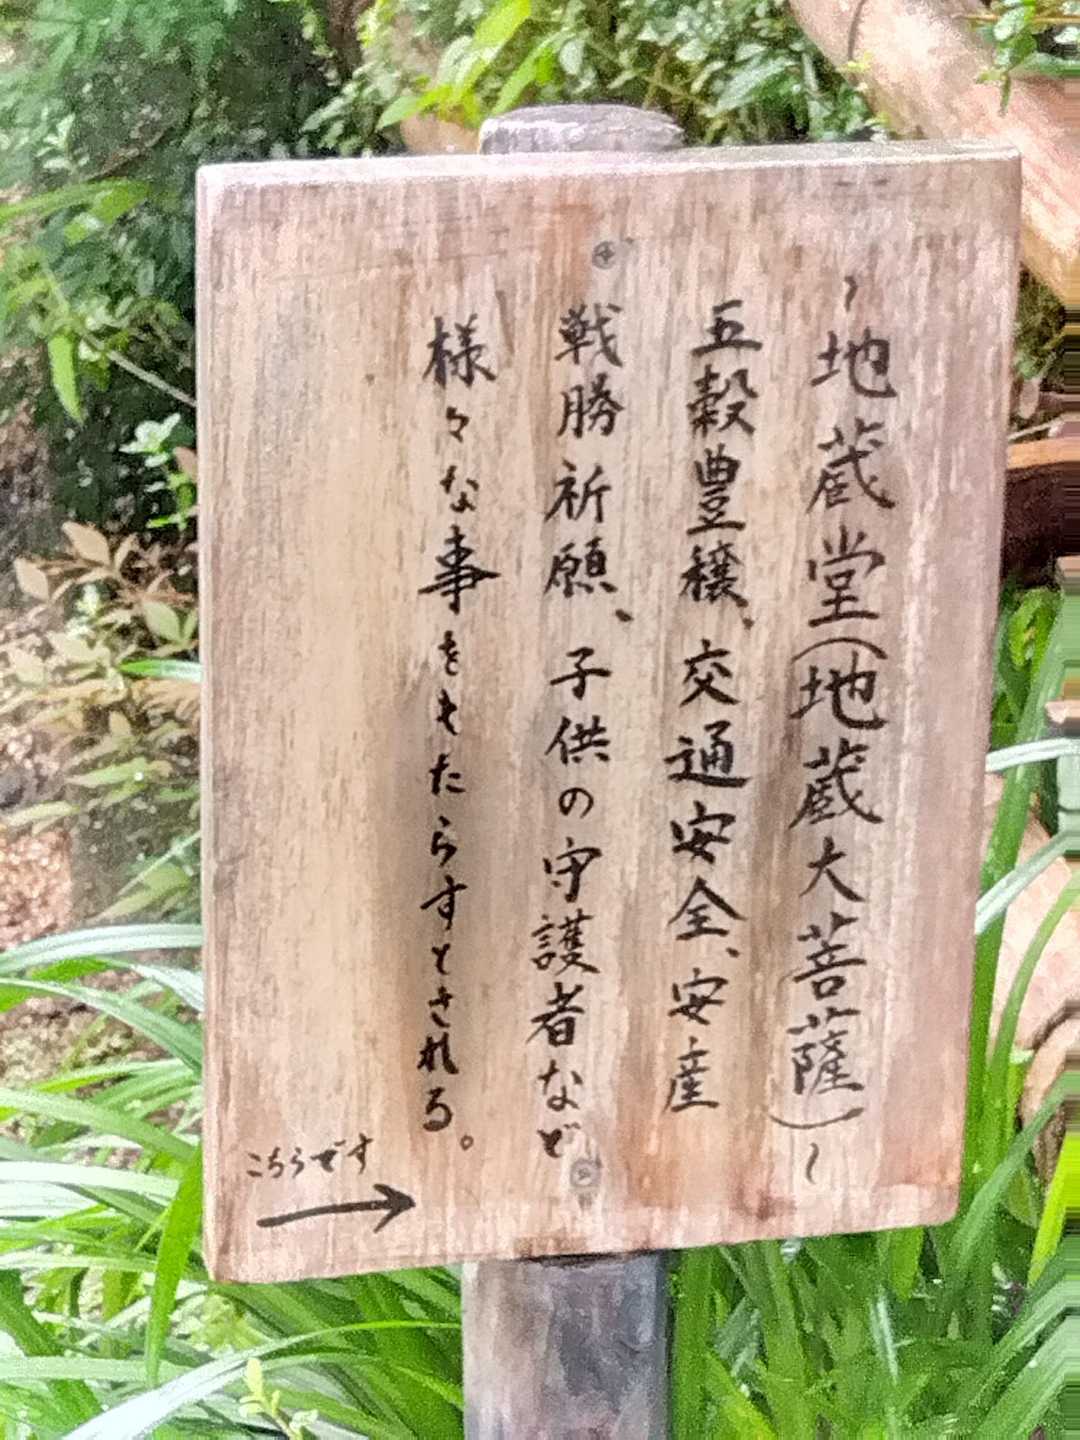 ~地蔵堂(地蔵大菩薩)~
五穀豊穣、交通安全、安産
戦勝祈願、子供の守護者など
様々な事をもたらすとされる。
こちらです
→